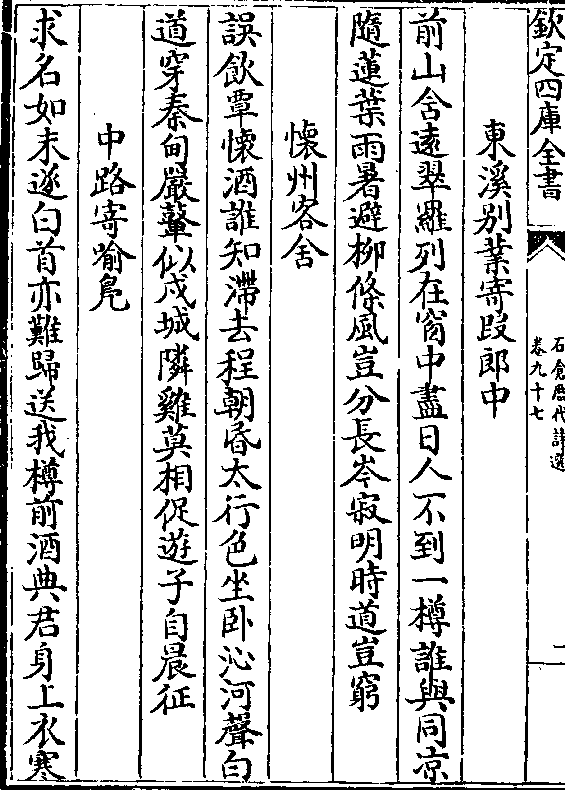 欽定四庫全書
石倉歷代詩選
卷九十七
二
東溪别業寄段郎中
前山含遠翠羅列在窗中盡日人不到一樽誰與同凉
隨蓮葉雨暑避柳條風豈分長岑寂明時道豈窮
懷州客舍
誤飲覃懷酒誰知滯去程朝昏太行色坐卧沁河聲白
道穿秦甸嚴鼙似戍城隣雞莫相促遊子自晨征
中路寄喻鳧
求名如未遂白首亦難歸送我樽前酒典君身上衣寒